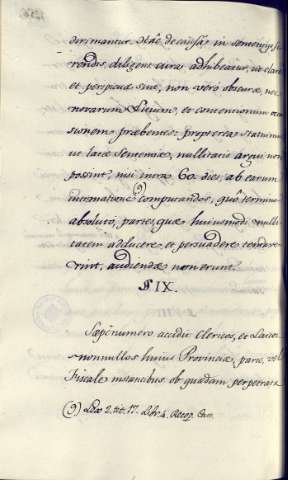 dirimantur. Hâc de causâ, in sententijs fe-
rendis, diligens cura adhibeatur, ut claræ
et perspicuæ sint, non verò obscuræ, nec
novarum Litium, et contentionum oca-
sionem præbentes: propterea statuimus
ut latæ Sententiæ, nullitatis argui non
possint, nisi intra 60. dies, ab earum
intimatione (9) computandos, quô termino
absolutô, partes, quæ huiusmodi nulli-
tatem adducere, et persuadere tentave-
rint, audiendæ non erunt.
§ IX.
Sæpè numero accidit Clericos, et Laicos
nonnullos huius Provinciæ, parte, vel
Fiscale instantibus ob quadam perpetrata
(9) Lex 2. tit. 17. Lib. 4. Recop. Cas.